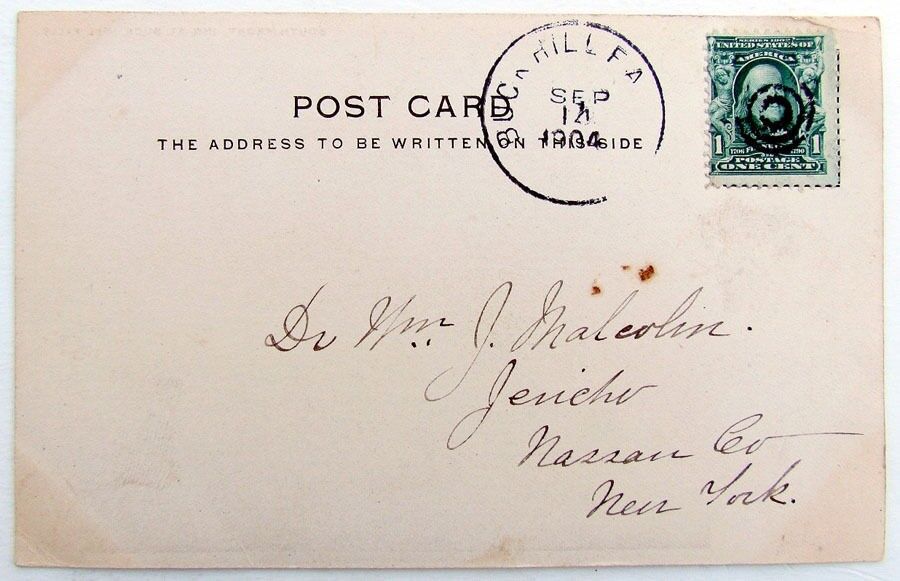 BUCK HILL FA
SEP
14
1904
SERIES 1902
UNITED STATES OF
AMERICA
1 1
1706 1790
POSTAGE
ONE CENT
POST CARD
THE ADDRESS TO BE WRITTEN ON THIS SIDE
Dr Wm. J. Malcolm.
Jericho
Nassau Co
New York.